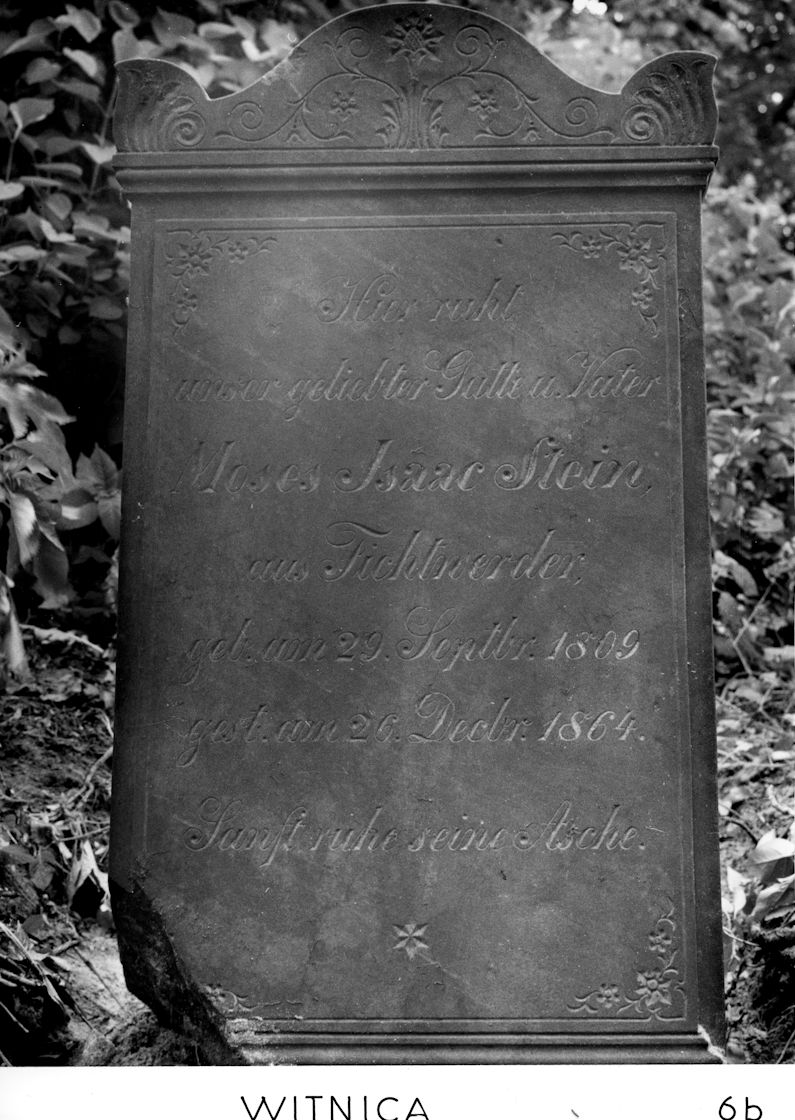 Hier ruht
unser geliebter Gatte u. Vater
Moses Isaac Stein,
aus Fichtwerder,
geb. am 29. Septbr. 1809
gest. am 26. Decbr. 1864.
Sanft ruhe seine Asche.
WITNICA 6b